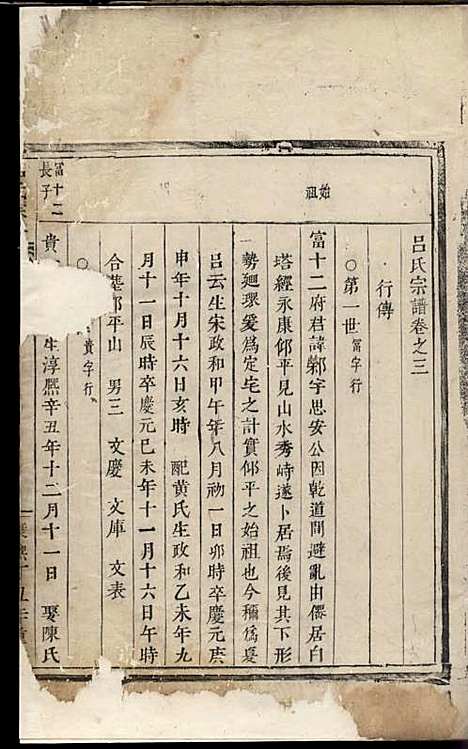 呂氏宗譜卷之三
行傳
○第一世富字行
始祖
富十二府君諱鄴字思安公因乾道間避亂由儒居白
塔經永康仰平見山水秀峙遂卜居焉後見其下形
勢廻環爰為定宅之計實仰平之始祖也今稱為夏
呂云生宋政和甲午年八月初一日卯時卒慶元庚
申年十月十六日亥時 配黃氏生政和乙未年九
月十一日辰時卒慶元己未年十一月十六日午時
合葬仰平山 男三 文慶 文庫 文表
○ 貴字行
富十二
長子
貴 生淳熙辛丑年十二月十一日 娶陳氏